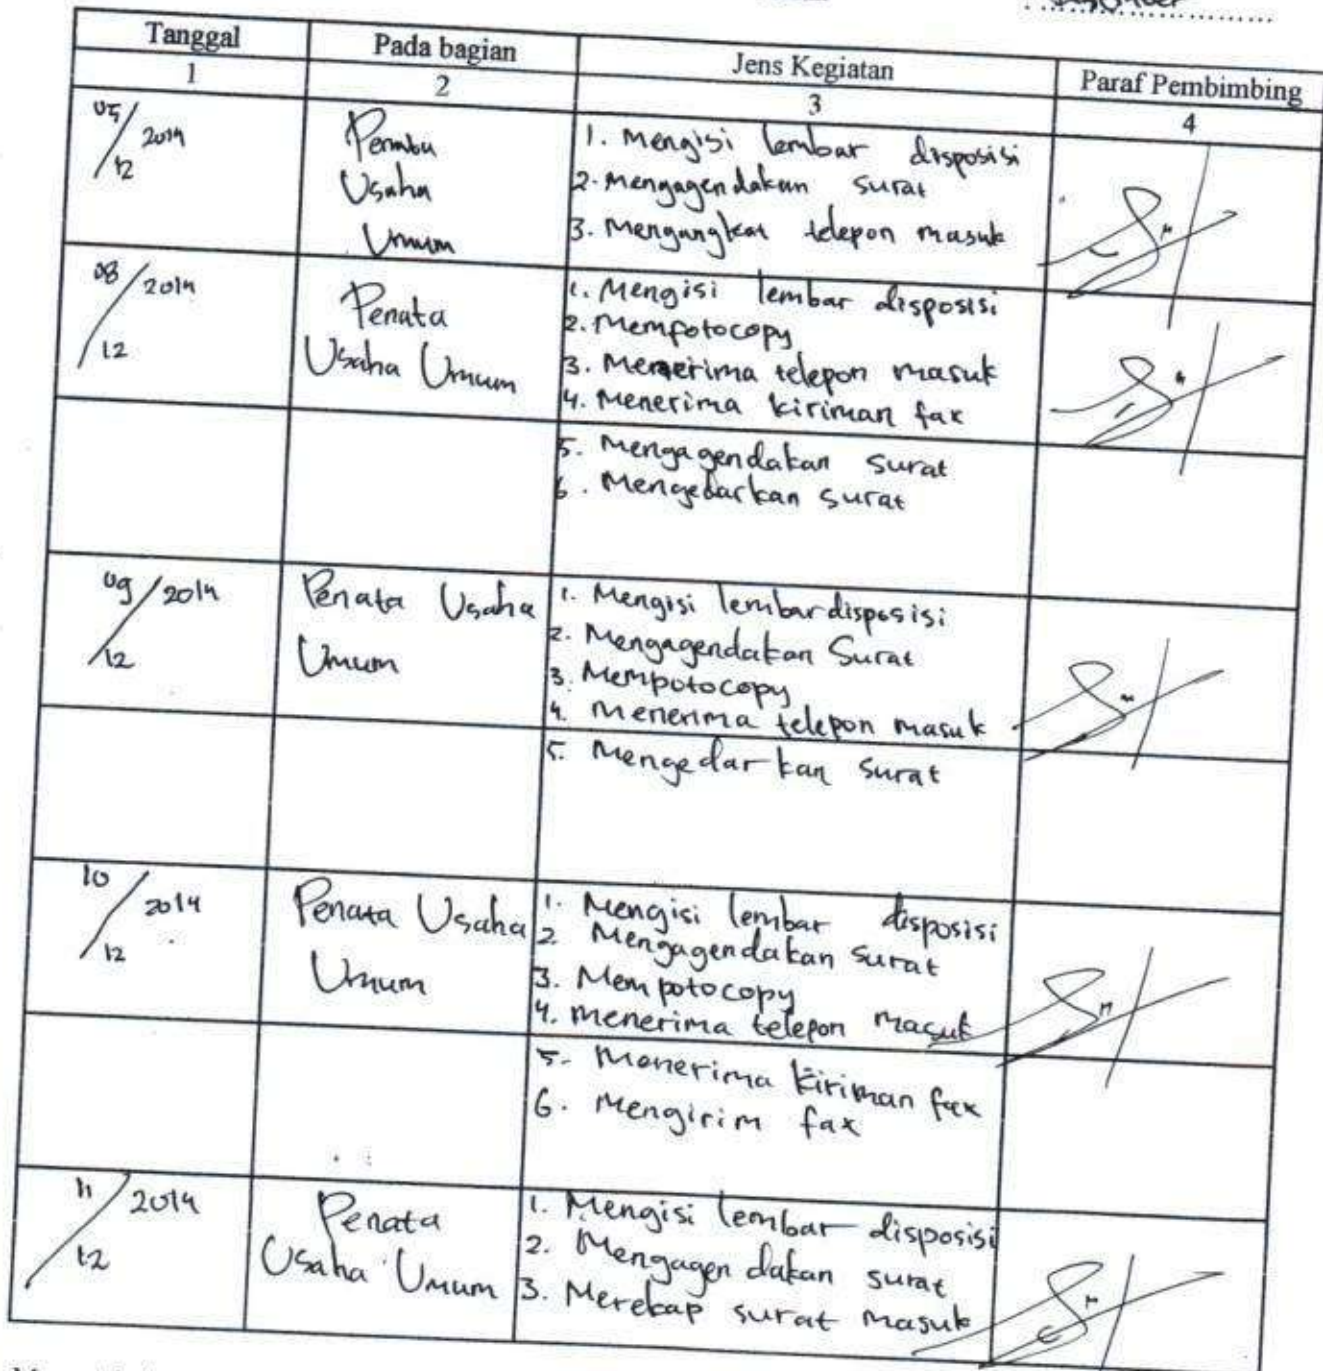 Desember
Tanggal Pada bagian Jens Kegiatan Paraf Pembimbing
1 2 3 4
05/12 2014 Penata Usaha Umum
1. Mengisi lembar disposisi
2. Mengagendakan surat
3. Mengangkat telepon masuk
08/12 2014 Penata Usaha Umum
1. Mengisi lembar disposisi
2. Mempotocopy
3. Menerima telepon masuk
4. Menerima kiriman fax
5. Mengagendakan surat
6. Mengedarkan surat
09/12 2014 Penata Usaha Umum
1. Mengisi lembar disposisi
2. Mengagendakan Surat
3. Mempotocopy
4. Menerima telepon masuk
5. Mengedarkan surat
10/12 2014 Penata Usaha Umum
1. Mengisi lembar disposisi
2. Mengagendakan surat
3. Mempotocopy
4. menerima telepon masuk
5. Menerima kiriman fax
6. Mengirim fax
11/12 2014 Penata Usaha Umum
1. Mengisi lembar disposisi
2. Mengagendakan surat
3. Merekap surat masuk